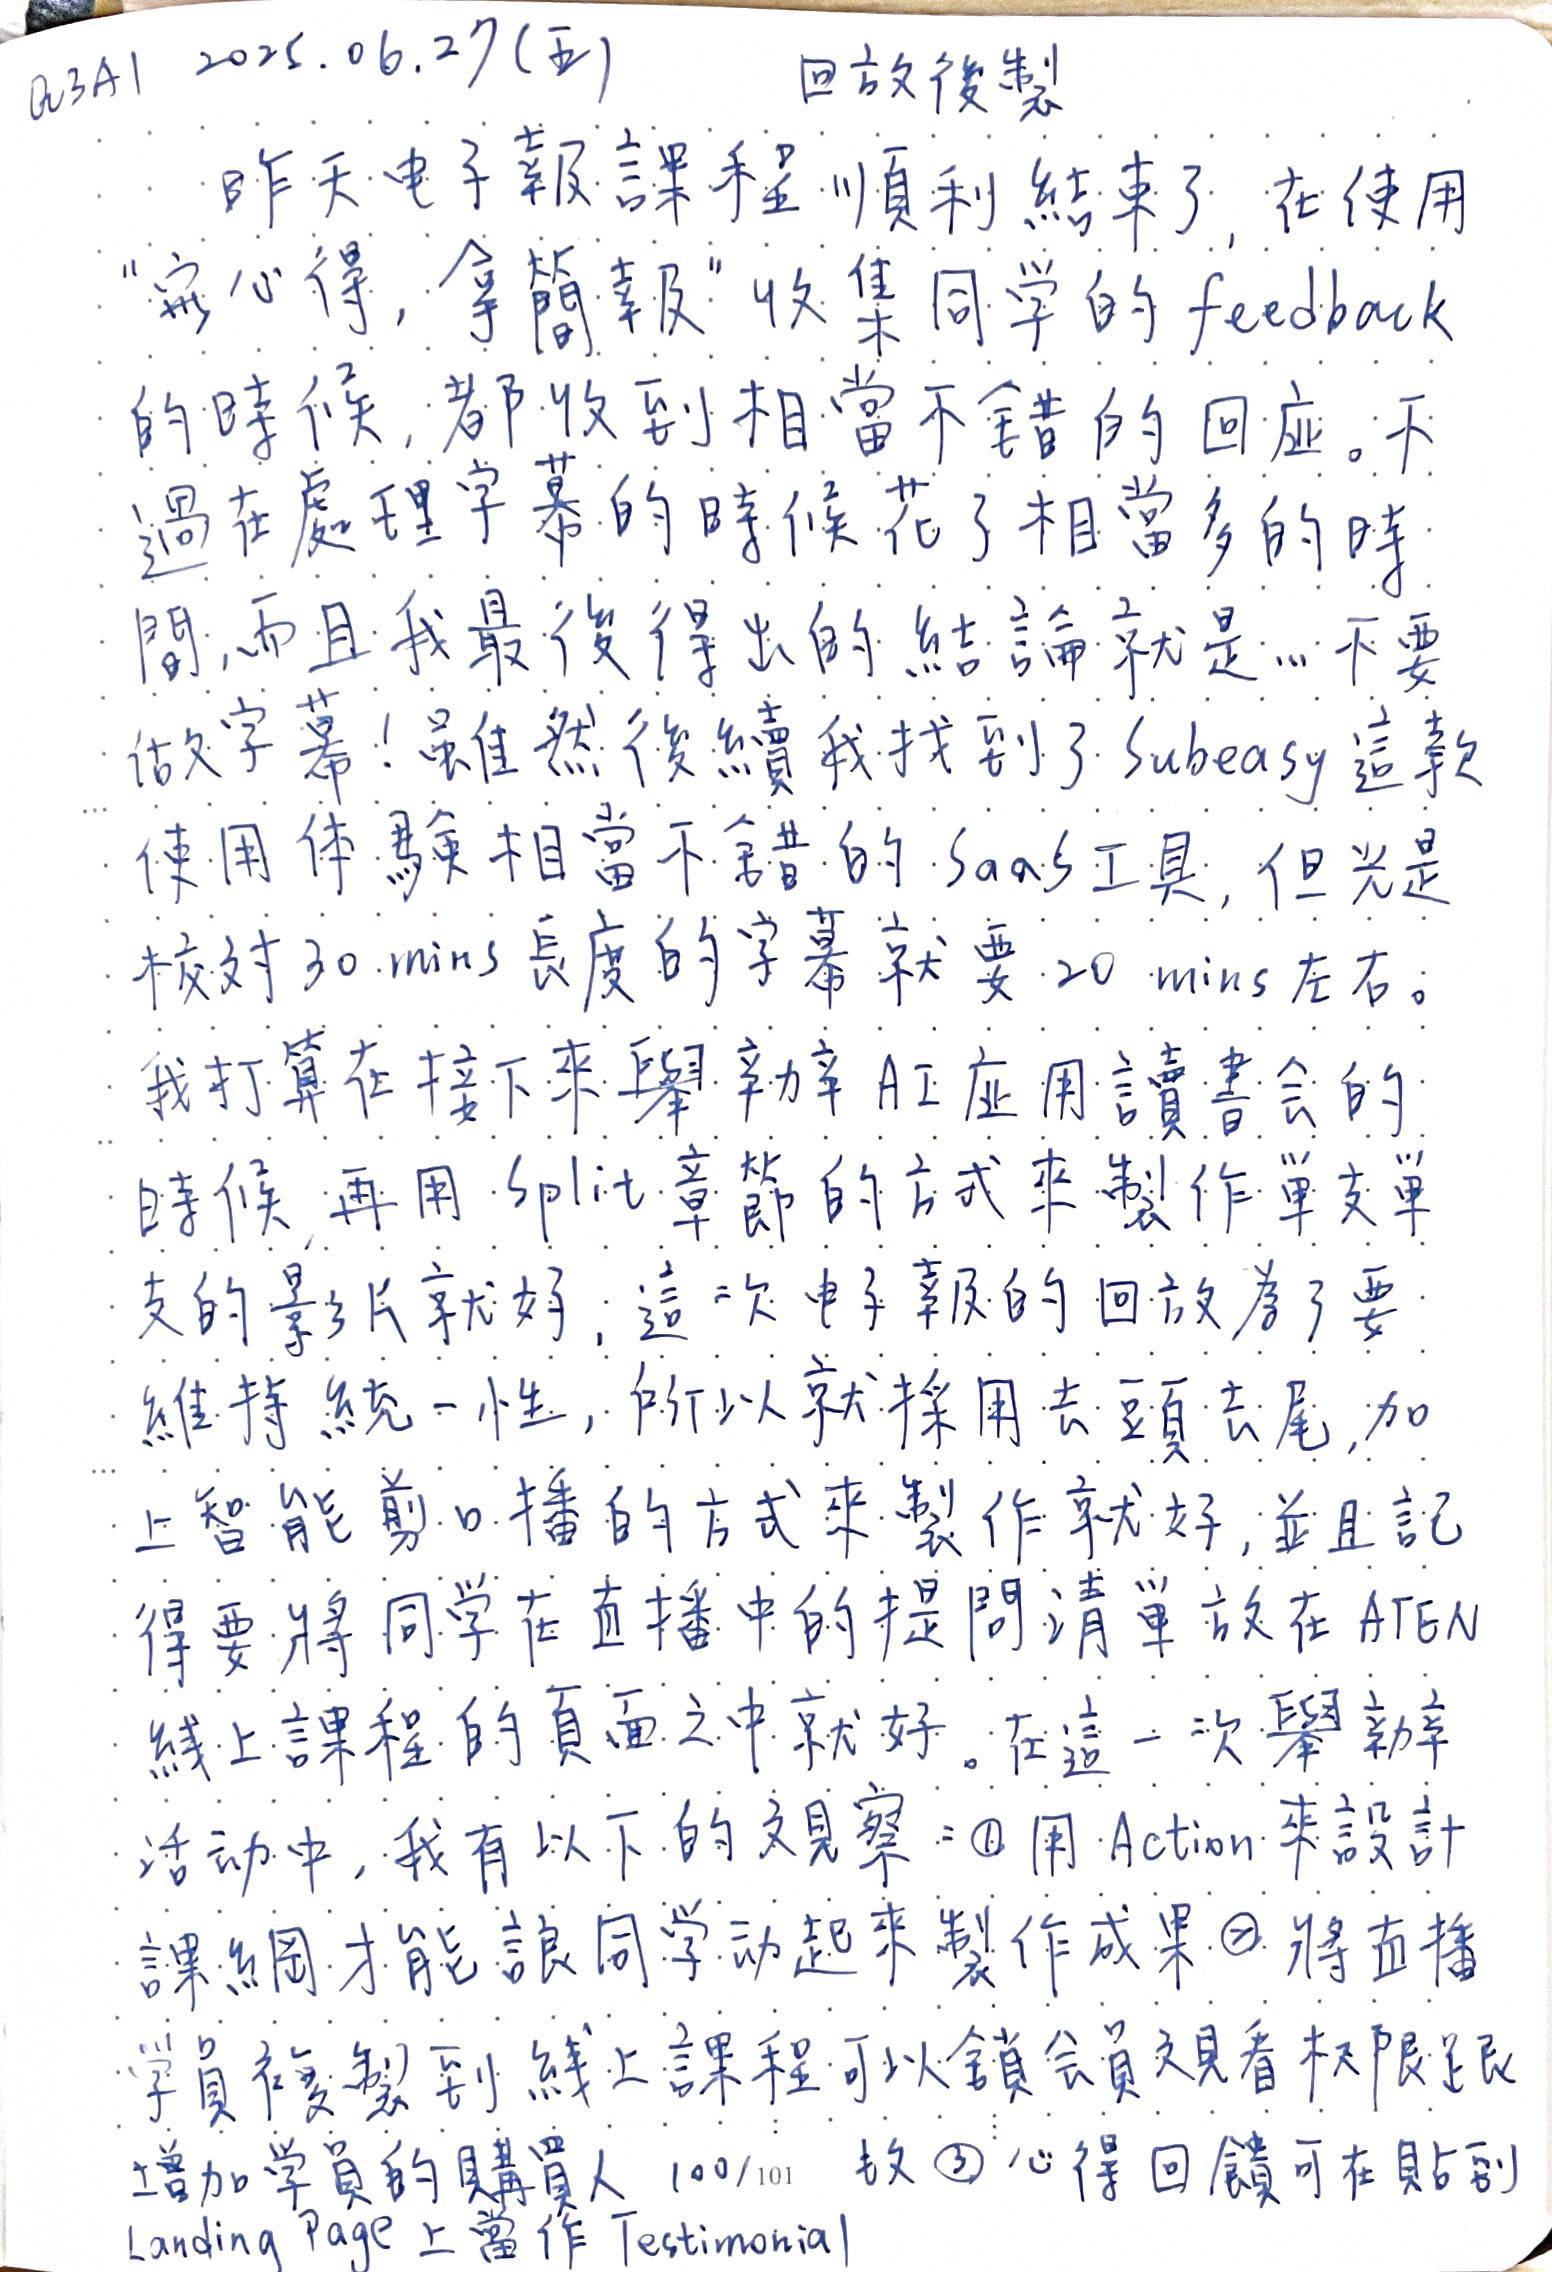 Q3A1 2025.06.27(五) 回放後製
昨天电子報課程順利結束了, 在使用
"寫心得, 拿簡報" 收集同学的 feedback
的時候, 都收到相當不錯的回应。不
過在處理字幕的時候花了相當多的時
間, 而且我最後得出的結論就是…不要
做字幕! 虽然後續我找到了 Subeasy 這款
使用体驗相當不錯的 SaaS 工具, 但光是
校对 30 mins 長度的字幕就要 20 mins 左右。
我打算在接下來舉辦 AI 应用讀書会的
時候, 再用 Split 章節的方式來製作單支單
支的影片就好, 這次电子報的回放为了要
維持統一性, 所以就採用去頭去尾, 加
上智能剪口播的方式來製作就好, 並且記
得要將同学在直播中的提問清單放在 ATEN
线上課程的頁面之中就好。在這一次舉辦
活动中, 我有以下的观察: ① 用 Action 來設計
課綱才能讓同学动起來製作成果 ② 將直播
学員複製到线上課程可以鎖会員观看权限跟
增加学員的購買人 100/101 数 ③ 心得回饋可在貼到
Landing Page 上當作 Testimonial